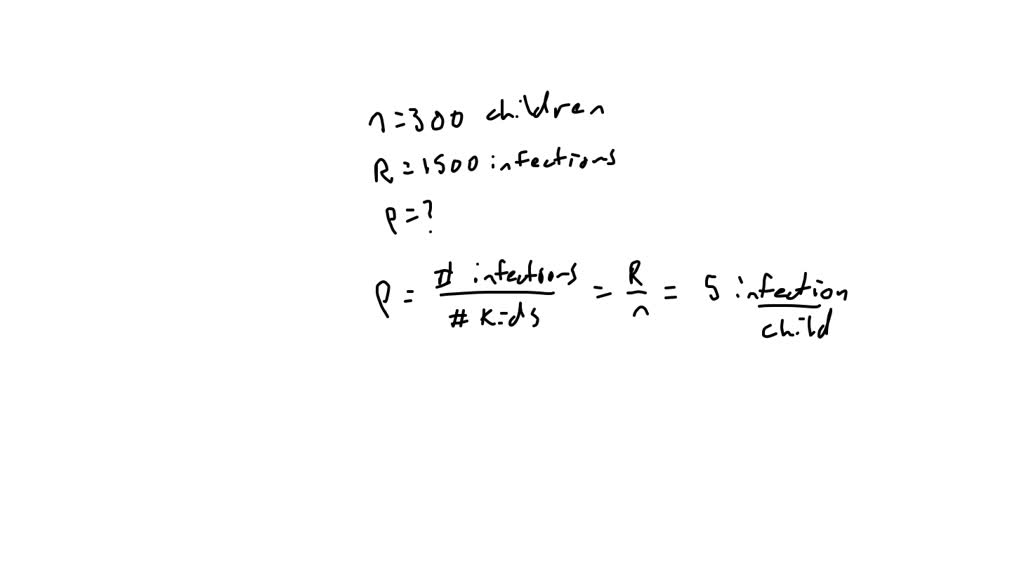 n=300 children
R=1500 infections
P=?
P = # infections / # kids = R/n = 5 infection/child